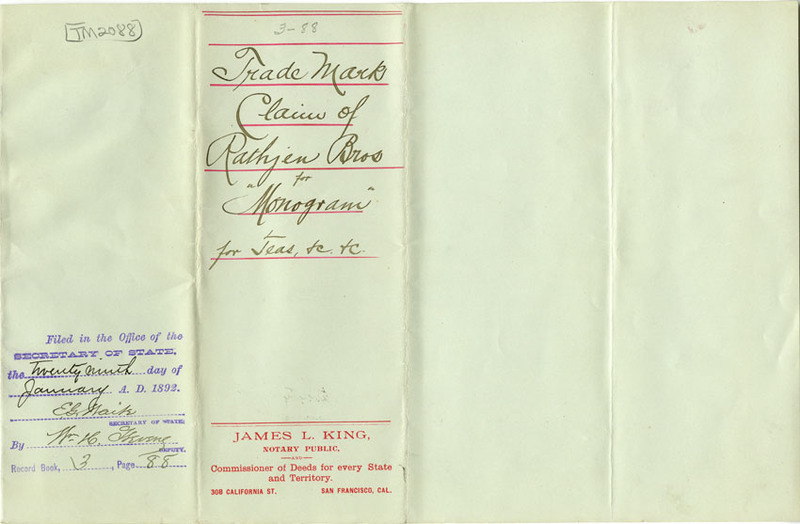 TM2088
3-88
Trade Mark
Claim of
Rathjen Bros
for
"Monogram"
for Teas, &c. &c.
Filed in the Office of the
SECRETARY OF STATE,
the twenty ninth day of
January A. D. 1892.
E G Waite
SECRETARY OF STATE
By Wm H.
DEPUTY.
Record Book, 13, Page 88
JAMES L. KING,
NOTARY PUBLIC,
—AND—
Commissioner of Deeds for every State
and Territory.
308 CALIFORNIA ST. SAN FRANCISCO, CAL.